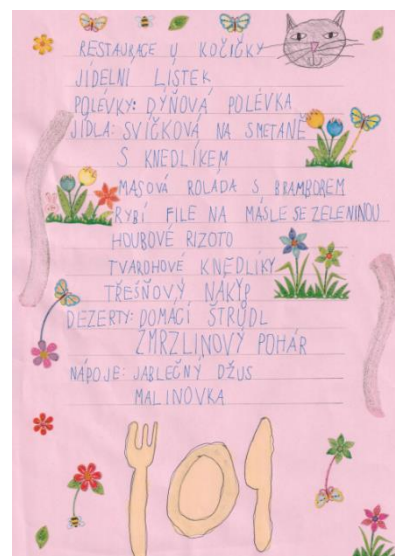 RESTAURACE U KOČIČKY
JÍDELNÍ LÍSTEK
POLÉVKY: DÝŇOVÁ POLÉVKA
JÍDLA: SVÍČKOVÁ NA SMETANĚ
S KNEDLÍKEM
MASOVÁ ROLADA S BRAMBOREM
RYBÍ FILE NA MÁSLE SE ZELENINOU
HOUBOVÉ RIZOTO
TVAROHOVÉ KNEDLÍKY
TŘEŠŇOVÝ NÁKYP
DEZERTY: DOMÁCÍ ŠTRŮDL
ZMRZLINOVÝ POHÁR
NÁPOJE: JABLEČNÝ DŽUS
MALINOVKA